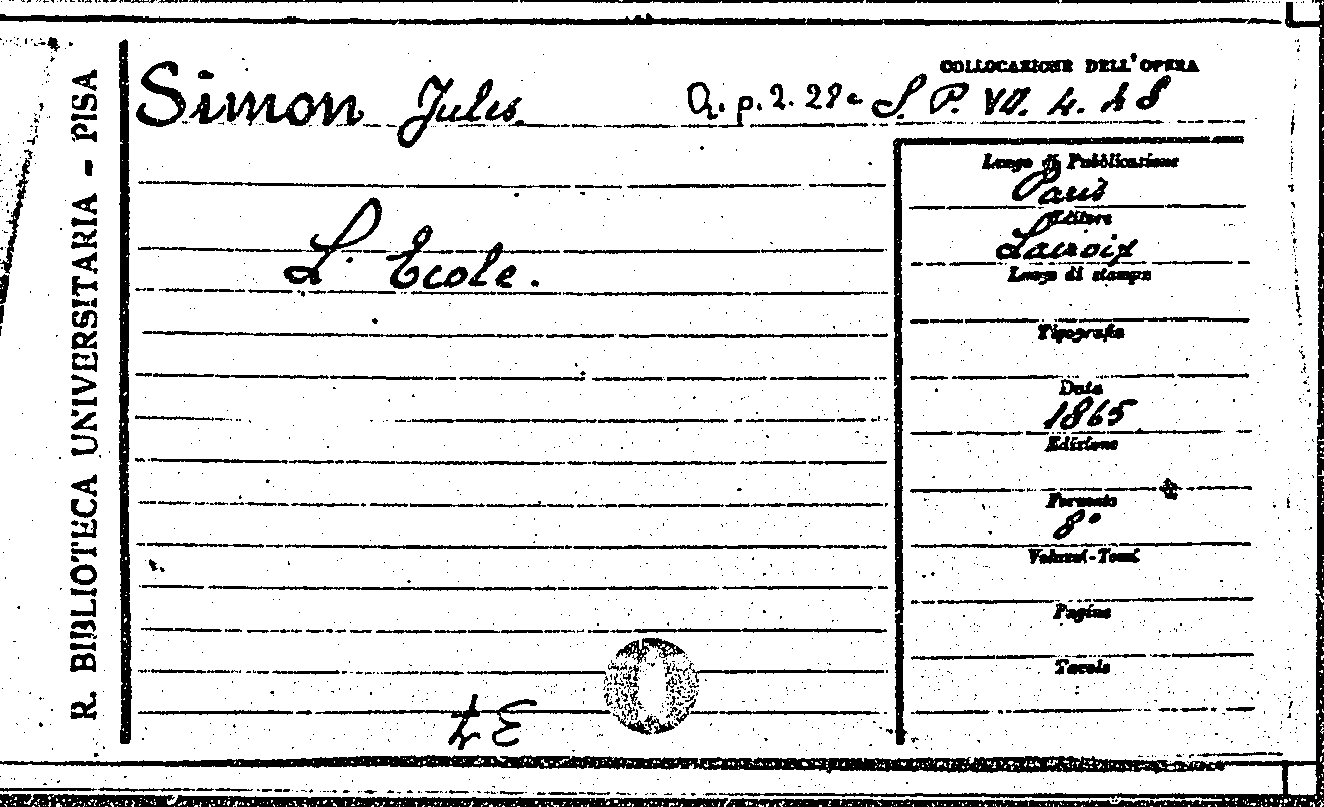 R. BIBLIOTECA UNIVERSITARIA - PISA
COLLOCAZIONE DELL'OPERA
Simon Jules.
S. P. VII. 4.
Luogo di Pubblicazione
Paris
Editore
Lacroix
L'Ecole.
Luogo di stampa
Tipografia
Data
1865
Edizione
Formato
8°
Volumi - Tomi
Pagine
Tavole